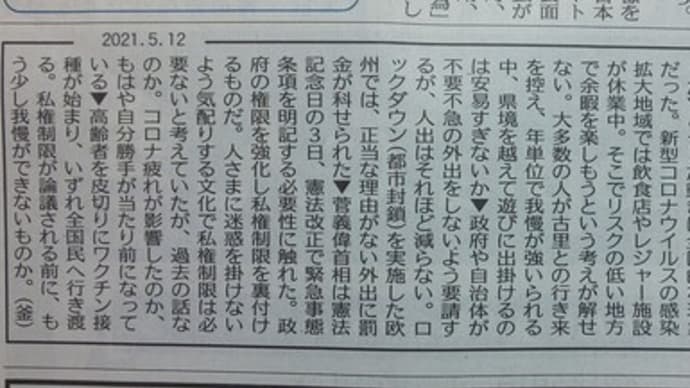 だった。新型コロナウイルスの感染
拡大地域では飲食店やレジャー施設
が休業中。そこでリスクの低い地方
で余暇を楽しもうという考えが解せ
ない。大多数の人が古里との行き来
を控え、年単位で我慢が強いられる
中、県境を越えて遊びに出掛けるの
は安易すぎないか▼政府や自治体が
不要不急の外出をしないよう要請す
るが、人出はそれほど減らない。ロ
ックダウン(都市封鎖)を実施した欧
州では、正当な理由がない外出に罰
金が科せられた▼菅義偉首相は憲法
記念日の3日、憲法改正で緊急事態
条項を明記する必要性に触れた。政
府の権限を強化し私権制限を裏付け
るものだ。人さまに迷惑を掛けない
よう気配りする文化で私権制限は必
要ないと考えていたが、過去の話な
のか。コロナ疲れが影響したのか、
もはや自分勝手が当たり前になって
いる▼高齢者を皮切りにワクチン接
種が始まり、いずれ全国民へ行き渡
る。私権制限が論議される前に、も
う少し我慢ができないものか。(釜)
2021.5.12